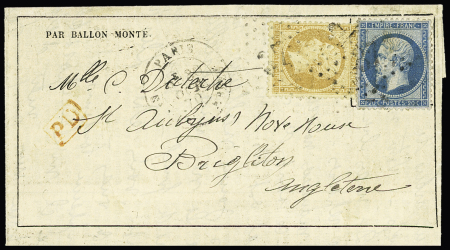 PAR BALLON MONTÉ.
PARIS
EMPIRE FRANC
POSTES
PD
Mlle C Dutertre
St Aubyns Hove House
Brighton
Angleterre